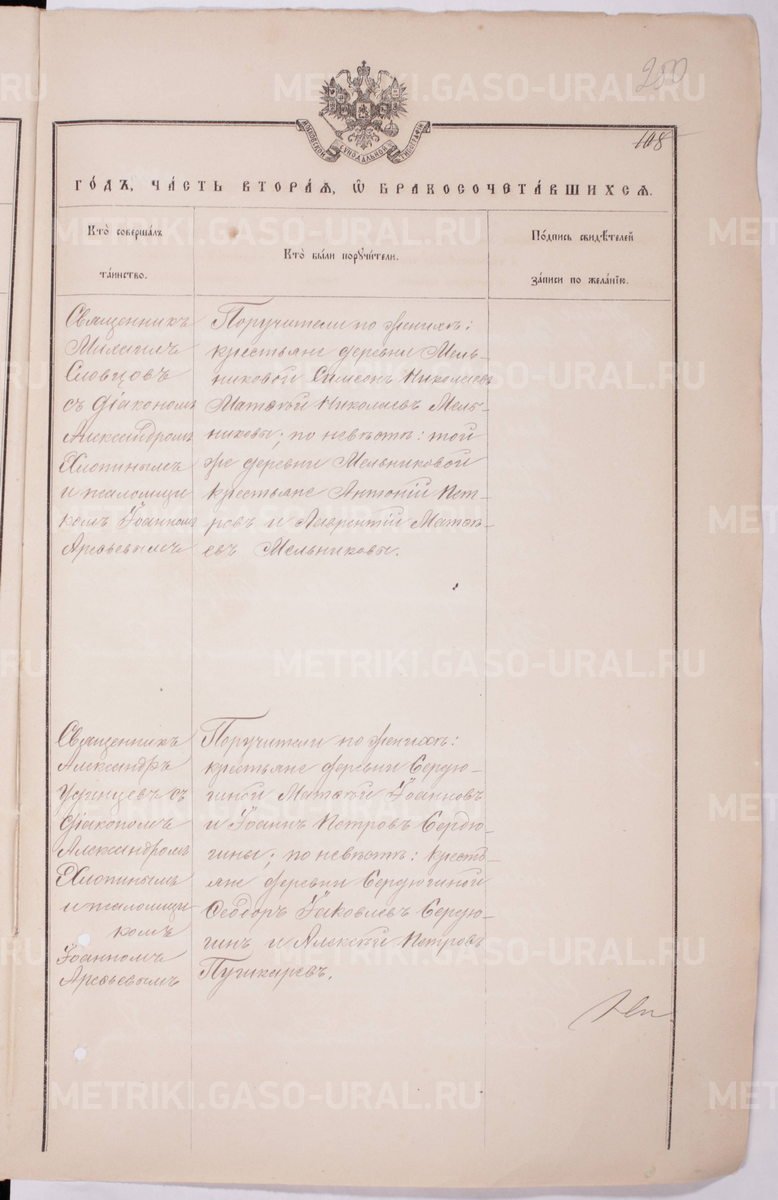 250
108
МОСКОВСКОЙ СѴНОДАЛЬНОЙ ТИПОГРАФІИ
ГО́ДЪ, ЧА́СТЬ ВТОРА́Я, Ѽ БРАКОСОЧЕТА́ВШИХСЯ.
Кто̀ совершалъ таинство.
Кто̀ были поручи́тели.
По́дпись свидѣ́телей записи по жела́нію.
Священникъ
Михаилъ
Словцовъ
съ діакономъ
Александромъ
Хлопинымъ
и псаломщи
комъ Іоанномъ
Арсеьевымъ
Поручители по женихѣ:
крестьяне деревни Мель-
никовой Симеонъ Николаевъ
Матѳей Николаевъ Мель-
никовы; по невѣстѣ: той
же деревни Мельниковой
крестьяне Антоній Пет-
ровъ и Лаврентій Матѳе-
евъ Мельниковы.
Священникъ
Александръ
съ
діакономъ
Александромъ
Хлопинымъ
и псаломщи
комъ
Іоанномъ
Арсеьевымъ
Поручители по женихѣ:
крестьяне деревни Сердю-
гиной Матѳей Іоанновъ
и Іоаннъ Петровъ Сердю-
гины; по невѣстѣ: кресть-
яне деревни Сердюгиной
Ѳеодоръ Іаковлевъ Сердю-
гинъ и Алексѣй Петровъ
Пушкаревъ.
METRIKI.GASO-URAL.RU